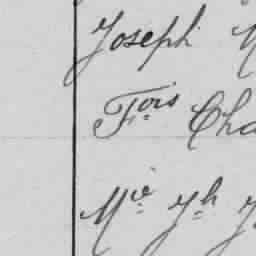 Joseph
Fois Cha
Mie Jh